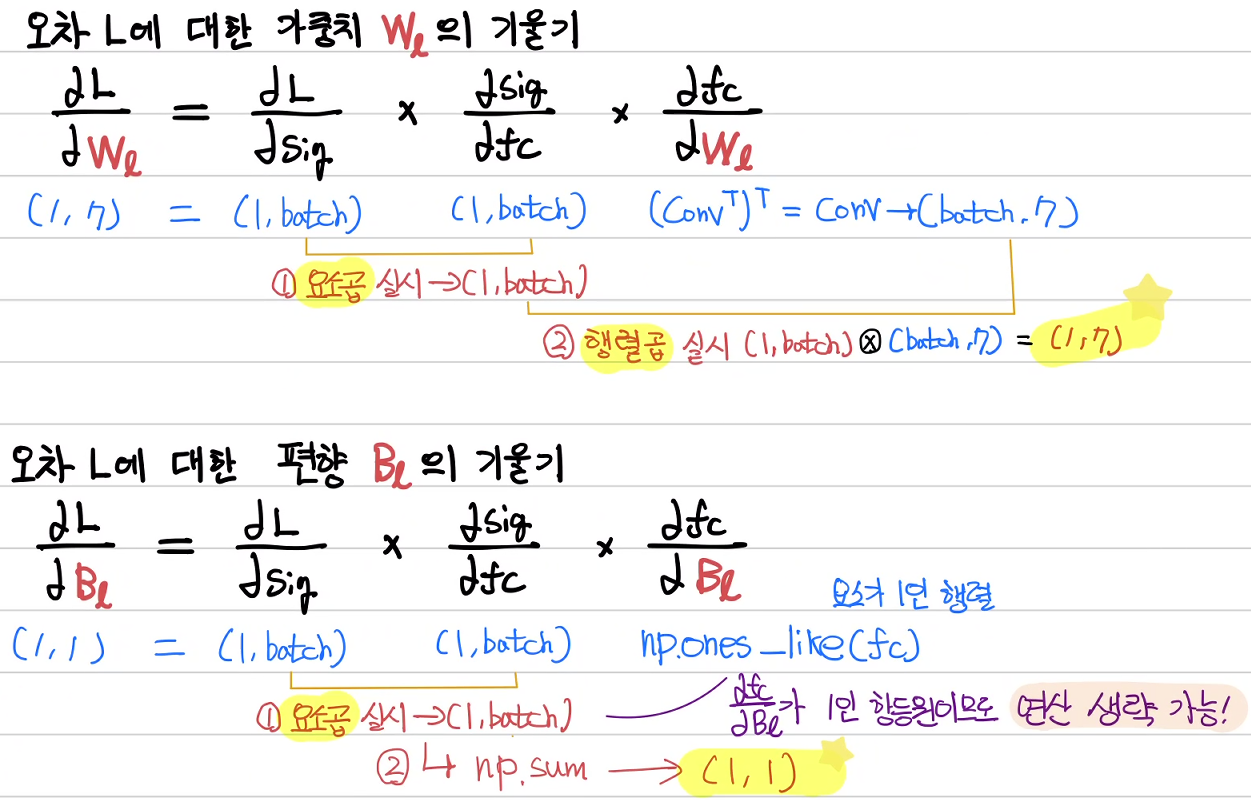 오차 L에 대한 가중치 Wℓ의 기울기
∂L/∂Wℓ = ∂L/∂sig × ∂sig/∂fc × ∂fc/∂Wℓ
(1, 7) = (1, batch) (1, batch) (Conv^T)^T = Conv→(batch, 7)
① 요소곱 실시→(1, batch)
② 행렬곱 실시 (1, batch)⊗(batch, 7) = (1, 7)
오차 L에 대한 편향 Bℓ의 기울기
∂L/∂Bℓ = ∂L/∂sig × ∂sig/∂fc × ∂fc/∂Bℓ
요소가 1인 행렬
(1, 1) = (1, batch) (1, batch) np.ones_like(fc)
① 요소곱 실시→(1, batch) ∂fc/∂Bℓ가 1인 항등원이므로 연산 생략 가능!
② ↳ np.sum → (1, 1)